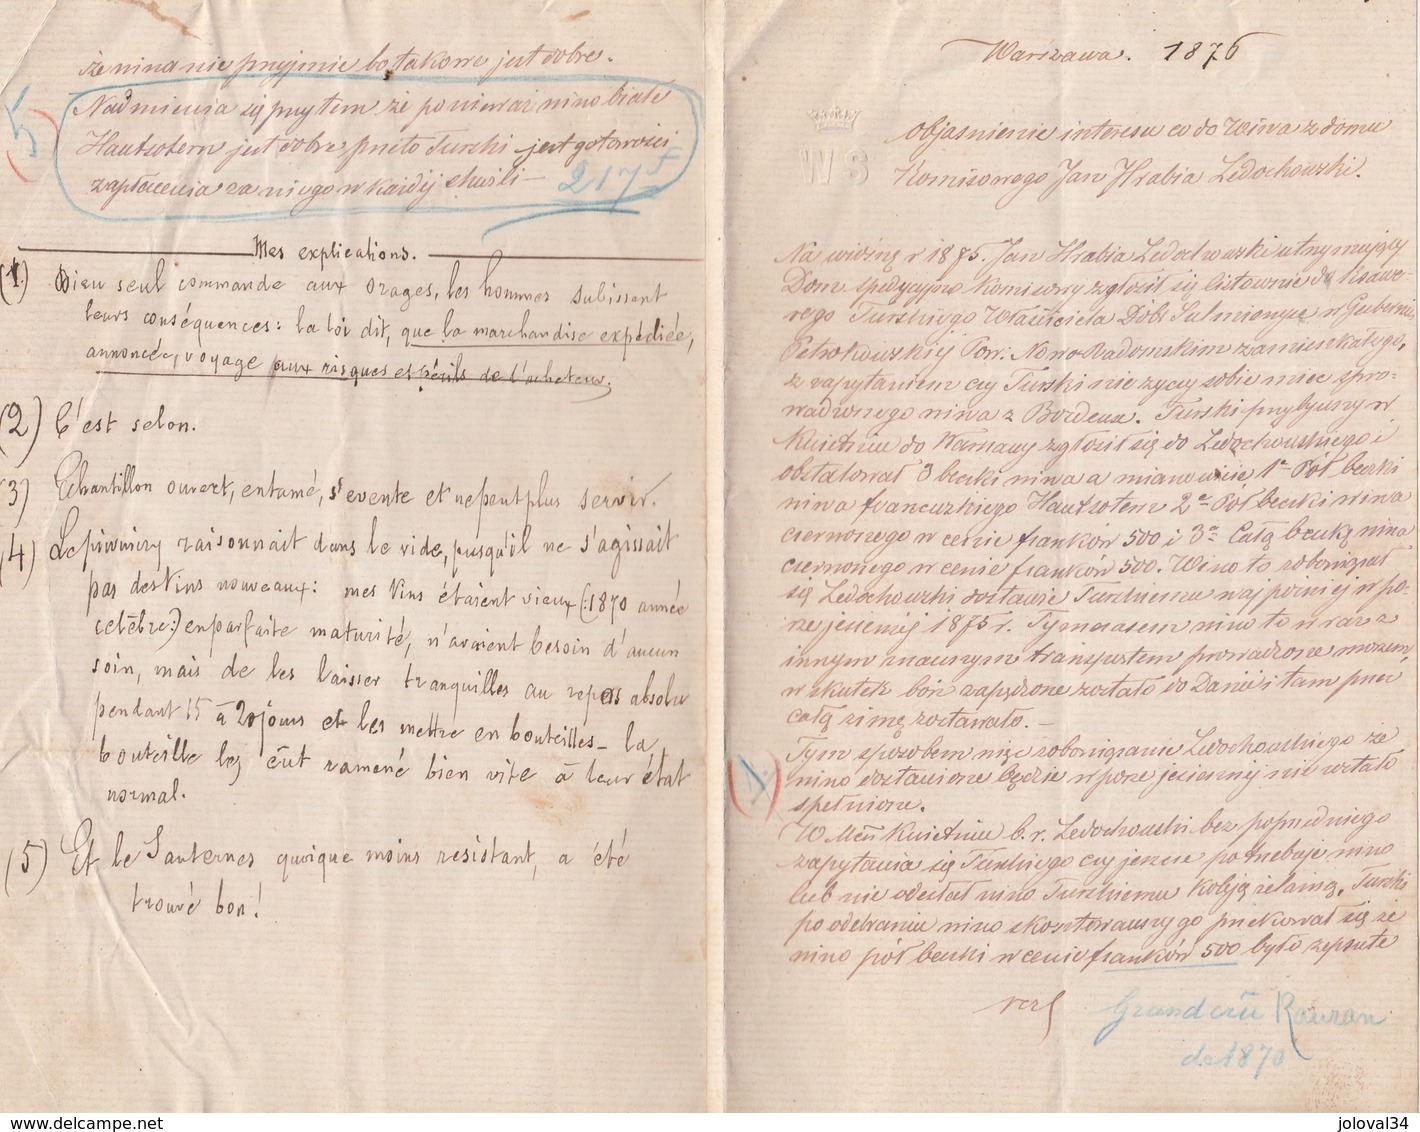 że wina nie przyjmie bo takowe jest dobre.
5)
Nadmienia się przytem że ponieważ wino białe
Hautsotern jest dobre przeto Turski jest gotowości
zapłacenia za niego w każdej chwili — 217 f
Mes explications.
(1.) Dieu seul commande aux orages, les hommes subissent
leurs conséquences: la loi dit, que la marchandise expédiée,
annoncée, voyage aux risques et périls de l'acheteur.
(2) C'est selon.
(3) Echantillon ouvert, entamé, s'évente et ne peut plus servir.
(4) raisonnait dans le vide, pusqu'il ne s'agissait
pas des Vins nouveaux: mes Vins étaient vieux (:1870 année
celèbre:) en parfaite maturité, n'avaient besoin d'aucun
soin, mais de les laisser tranquilles au repos absolu
pendant 15 à 20 jours et les mettre en bouteilles — la
bouteille les eût ramené bien vite à leur état
normal.
(5) Et le Sauternes quoique moins resistant, a été
trouvé bon!
Warszawa. 1876
WS
Objasnienie interesu co do Wina z domu
Komisowego Jan Hrabia Ledochowski.
Na wiosnę r 1875. Jan Hrabia Ledochowski utrzymujący
Dom spedycyjno Komisowy zgłosił się listownie do Ksawe-
rego Turskiego Właściciela Dóbr Sulmierzyce w Gubernii
Petrokowskiej Pow: Nowo Radomskim zamieszkałego,
z zapytaniem czy Turski nie życzy sobie miec spro=
wadzonego wina z Bordeux. Turski przybywszy w
Kwietniu do Warszawy zgłosił się do Ledochowskiego i
obstalował 3 beczki wina a mianowicie, 1º Pół beczki
wina francuzkiego Hautsotern 2º Pół beczki wina
czerwonego w cenie franków 500 i 3º Całą beczkę wina
czerwonego w cenie franków 500. Wino to zobowiązał
się Ledochowski dostawić Turskiemu najpóźniej w po-
rze jesiennej 1875 r. Tymczasem wino to wraz z
innym znacznym transportem prowadzone morzem,
w skutek burz zapędzone zostało do Danii i tam przez
całą zimę zostawało. —
Tym sposobem więc zobowiązanie Ledochowskiego że
(1.) wino dostawione będzie w porze jesiennej nie zostało
spełnione.
W Mcu Kwietniu b. r. Ledochowski bez poprzedniego
zapytania się Turskiego czy jeszcze potrzebuje wino
lub nie odesłał wino Turskiemu koleją żelazną, Turski
po odebraniu wino skosztowawszy go przekonał się że
wino pół beczki w cenie franków 500 było zepsute
vers
Grand crû Rauzan
de 1870
www.delcampe.net
joloval34